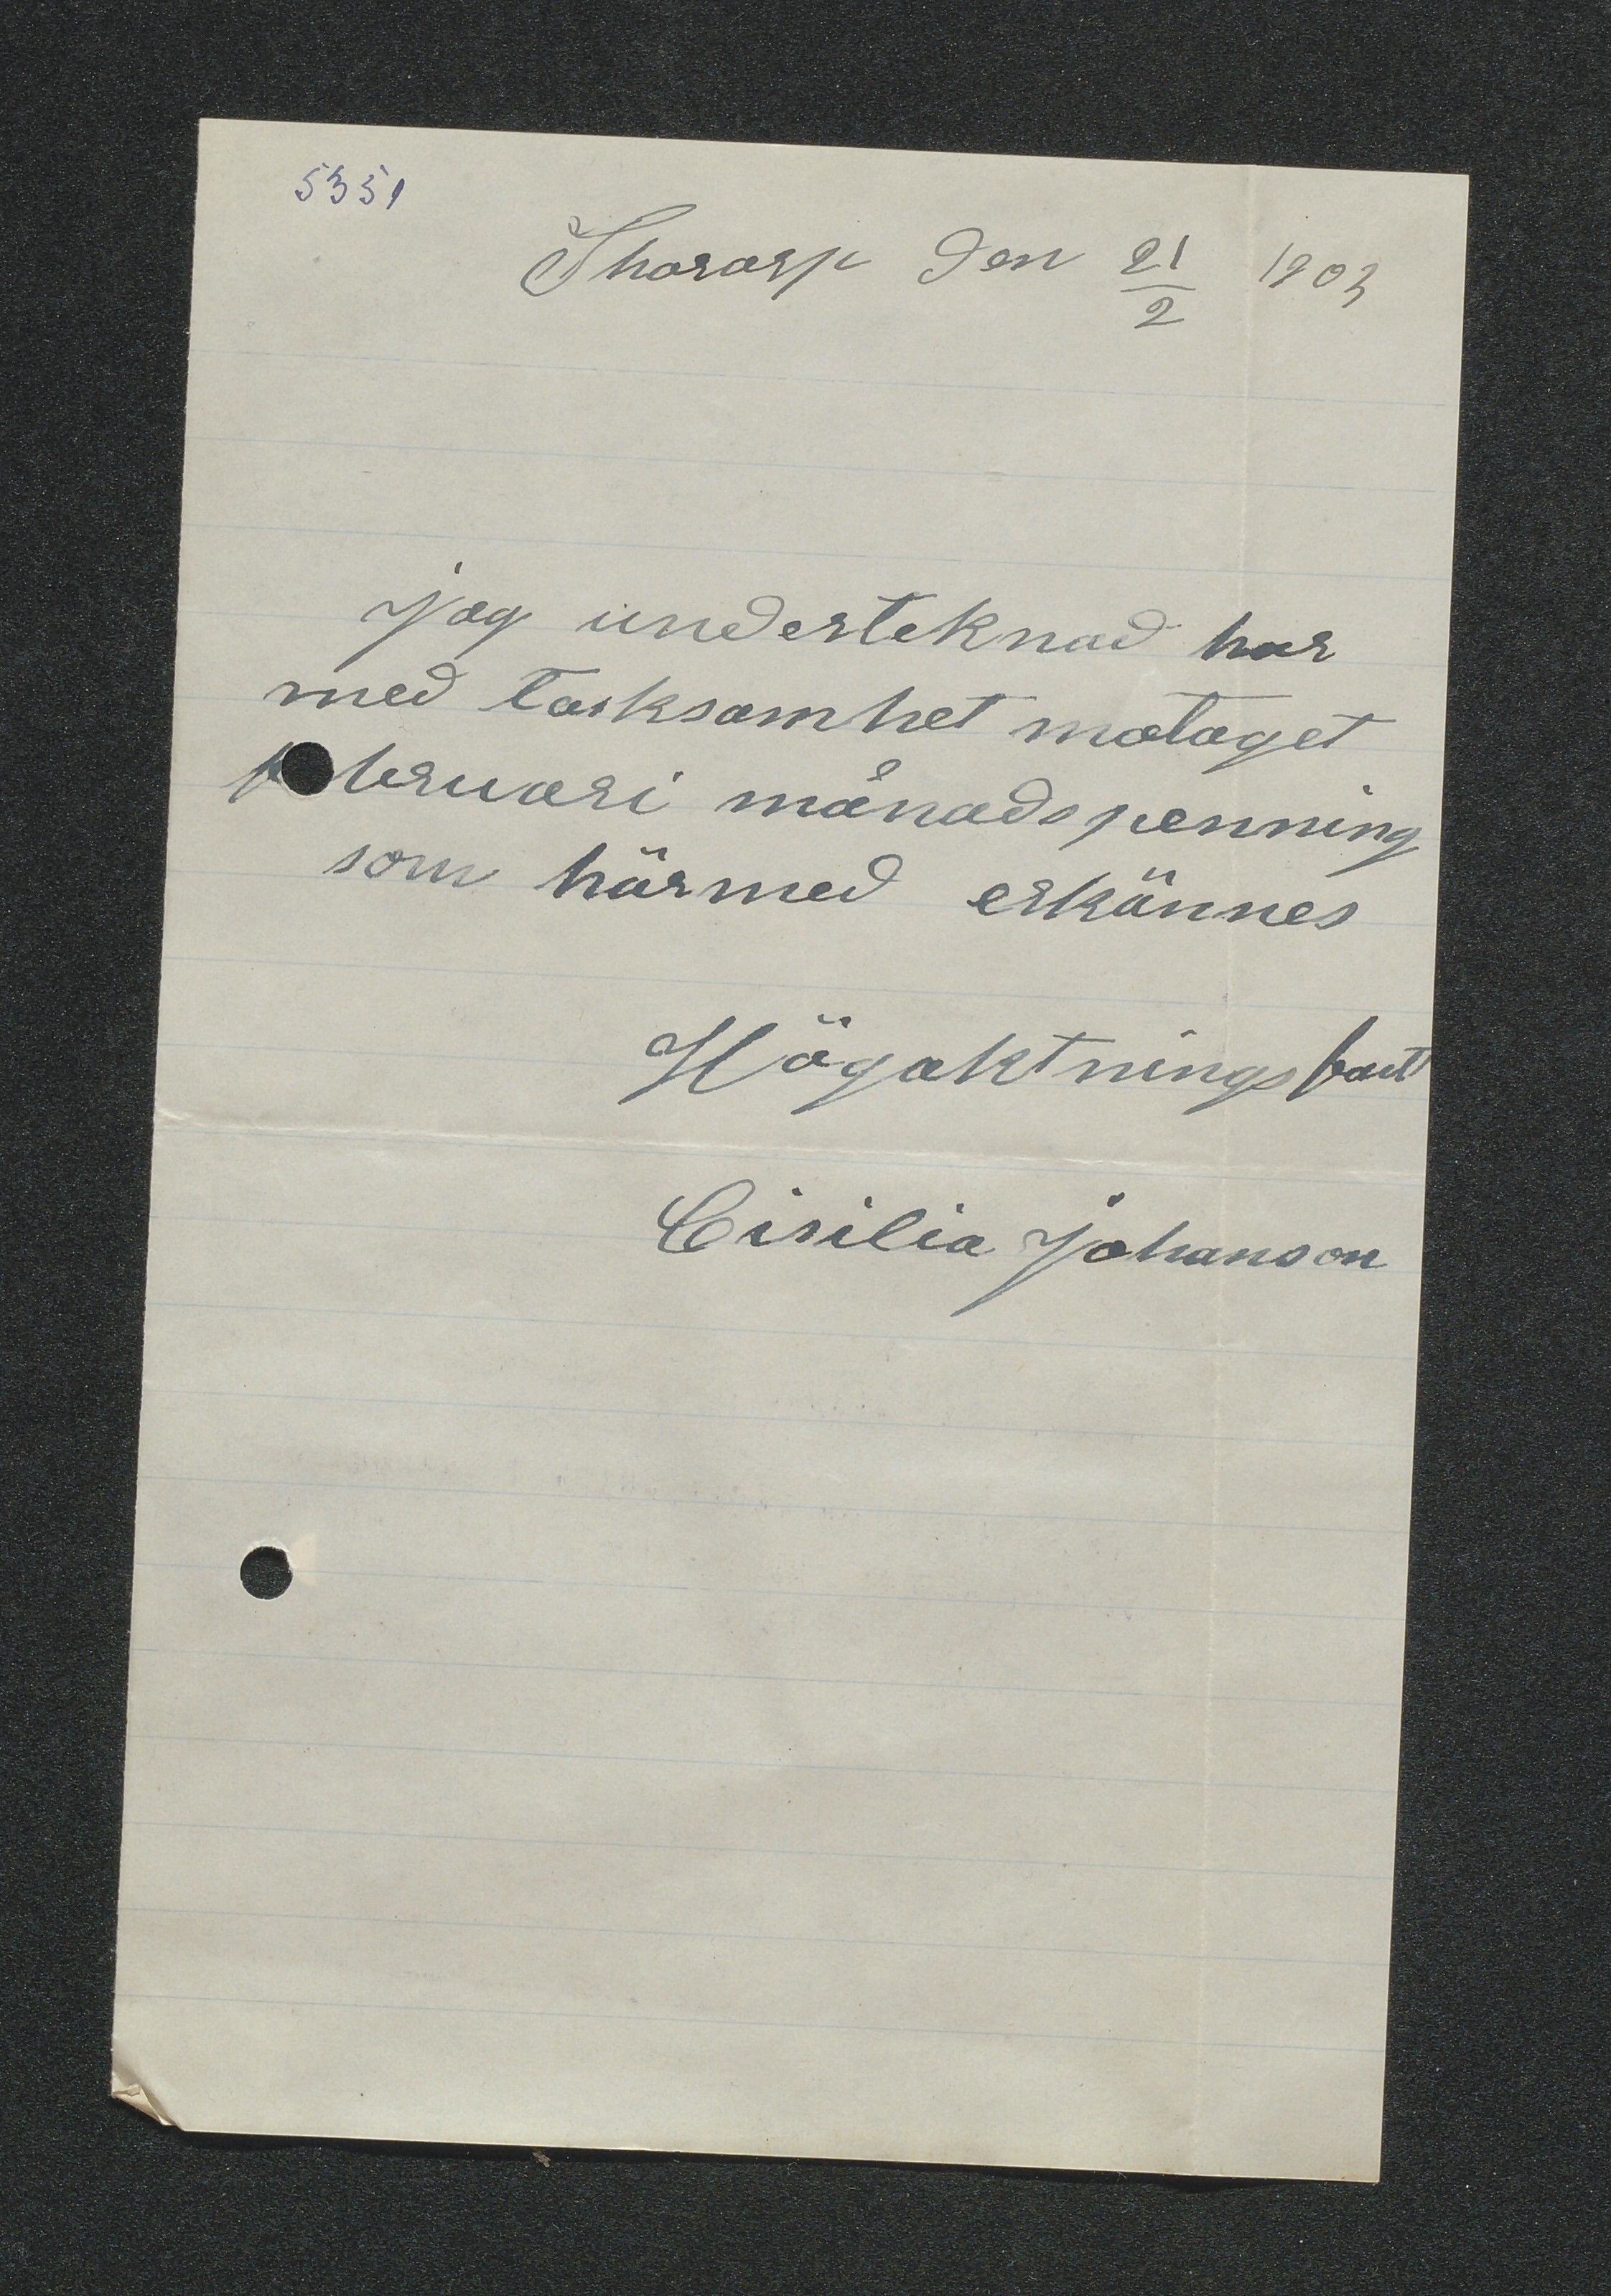 5351
Thorarp den 21/2 1903
jag underteknad har
med taksamhet mataget
februari månads penning
som härmed erkännes
Högaktningsfult
Cisilia Johanson